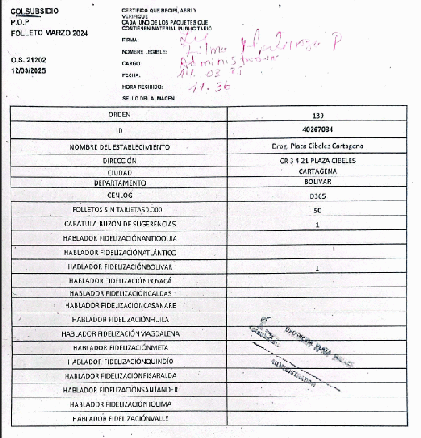 COLSUBSIDIO
P.O.P
FOLLETO MARZO 2024
O.S. 21202
CERTIFICA QUE RECIBI, ABRIO
VERIFIQUE
CADA UNO DE LOS PAQUETES QUE
CONTIENE MATERIAL PUBLICITARIO
FIRMA
NOMBRE LEGIBLE:
CARGO:
Administrador
FECHA:
HORA RECIBIDO:
11:36
SELLO DEL ALMACEN
ORDEN 139
ID
NOMBRE DEL ESTABLECIMIENTO Drog. Plaza Cibeles Cartagena
DIRECCIÓN CR 3 4 21 PLAZA CIBELES
CIUDAD CARTAGENA
DEPARTAMENTO BOLIVAR
CENLOG
FOLLETOS SIN TARJETAS 50
CARATULA BUZON DE SUGERENCIAS 1
HABLADOR FIDELIZACIÓN ANTIOQUIA
HABLADOR FIDELIZACIÓN ATLÁNTICO
HABLADOR FIDELIZACIÓN BOLIVAR 1
HABLADOR FIDELIZACIÓN BOYACÁ
HABLADOR FIDELIZACIÓN CALDAS
HABLADOR FIDELIZACION CASANARE
HABLADOR FIDELIZACIÓN HUILA
HABLADOR FIDELIZACIÓN MAGDALENA
HABLADOR FIDELIZACIÓN META
HABLADOR FIDELIZACIÓN QUINDÍO
HABLADOR FIDELIZACIÓN RISARALDA
HABLADOR FIDELIZACIÓN SANTANDER
HABLADOR FIDELIZACIÓN TOLIMA
HABLADOR FIDELIZACIÓN VALLE